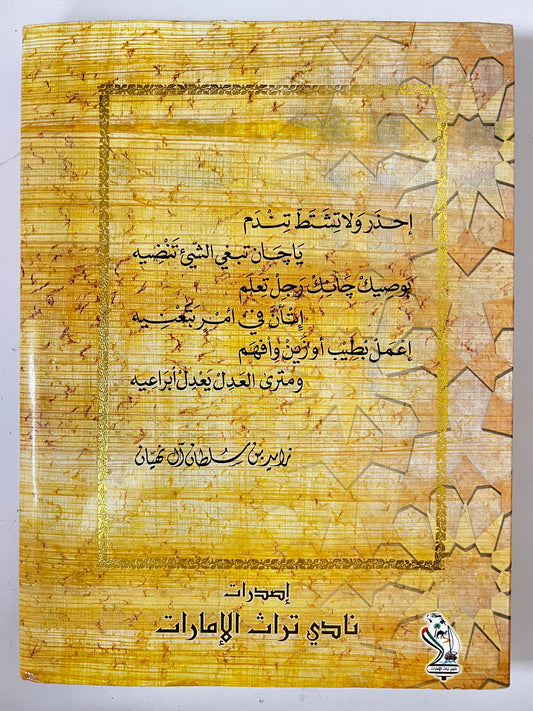 إحذر ولا تشتط تندم
يا چان تبغي الشيّ تنضيه
يوصيك چانك رجل تعلم
إتأن في امر بتعنيه
إعمل بطيب أو زين وأفهم
ومترى العدل يعدل أبراعيه
زايد بن سلطان آل نهيان
إصدرات
نادي تراث الإمارات